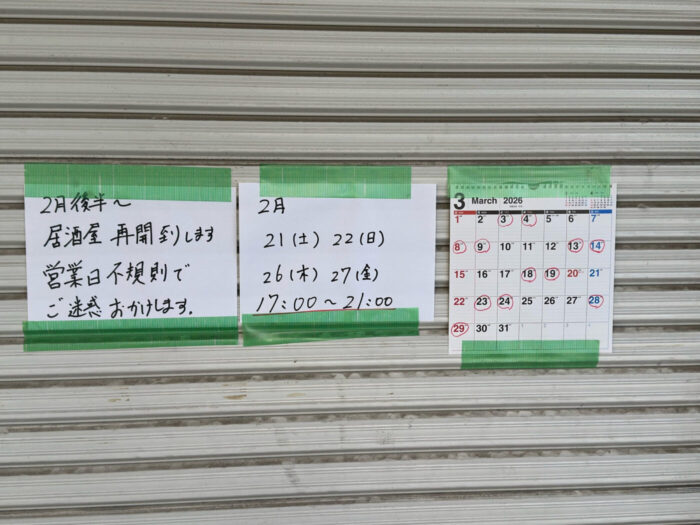 2月後半～
居酒屋 再開致します
営業日不規則で
ご迷惑おかけします.
2月
21(土) 22(日)
26(木) 27(金)
17:00～21:00
3 March 2026
1 2 3 4 5 6 7
8 9 10 11 12 13 14
15 16 17 18 19 20 21
22 23 24 25 26 27 28
29 30 31